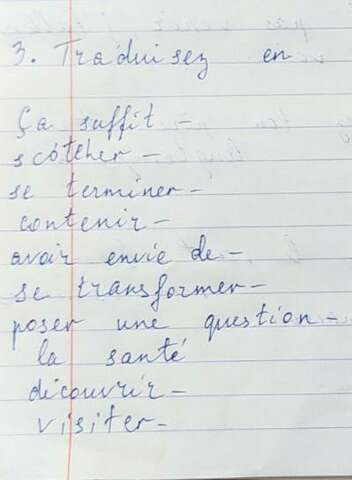 3. Traduisez en
Ça suffit -
scotcher -
se terminer -
contenir -
avoir envie de -
se transformer -
poser une question -
la santé
découvrir -
visiter -